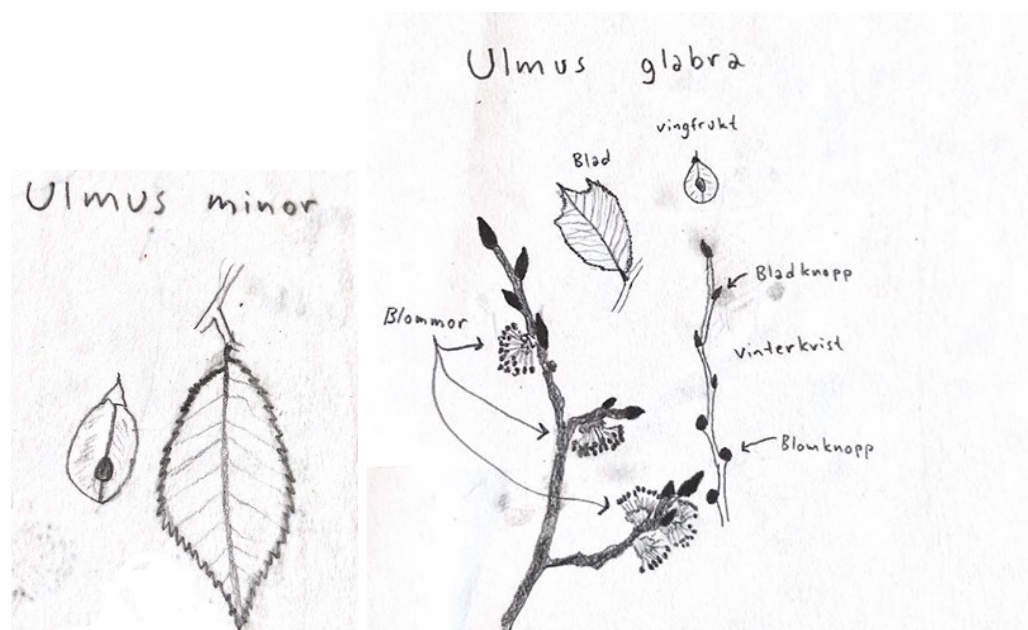 Ulmus minor
Ulmus glabra
vingfrukt
Blad
Bladknopp
Blommor
vinterkvist
Blomknopp